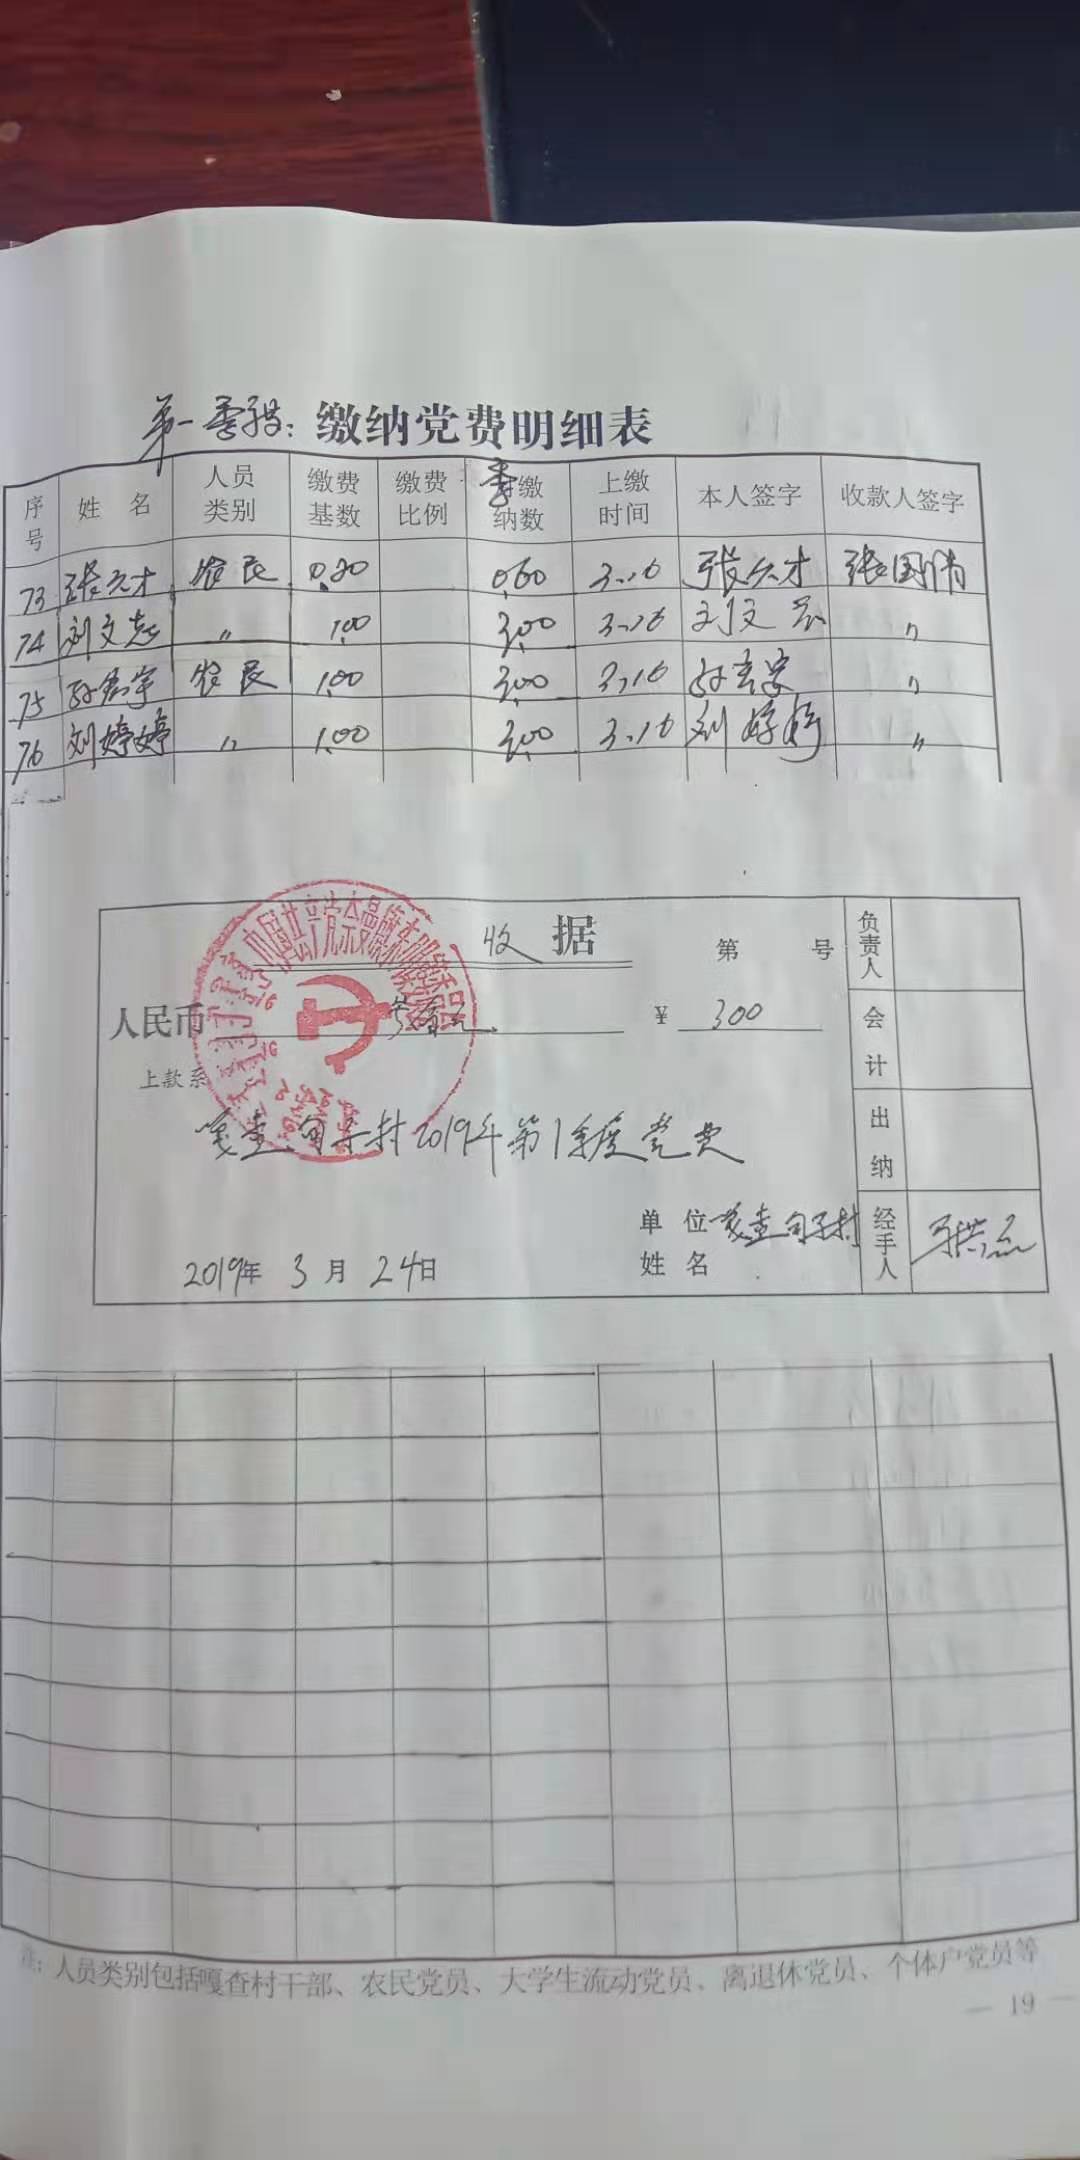 第一季度: 缴纳党费明细表
序号 姓名 人员类别 缴费基数 缴费比例 季缴纳数 上缴时间 本人签字 收款人签字
73 张久才 农民 0.20 0.60 3.16 张久才 张国清
74 刘文志 〃 1.00 3.00 3.16 刘文志 〃
75 农民 1.00 3.00 3.16 〃
76 刘婷婷 〃 1.00 3.00 3.16 刘婷婷 〃
收据 第 号
人民币 叁百元 ¥ 300
上款系
村2019年第1季度党费
单位
姓名
2019年 3月 24日
负责人
会计
出纳
经手人
注: 人员类别包括嘎查村干部、农民党员、大学生流动党员、离退休党员、个体户党员等
— 19 —